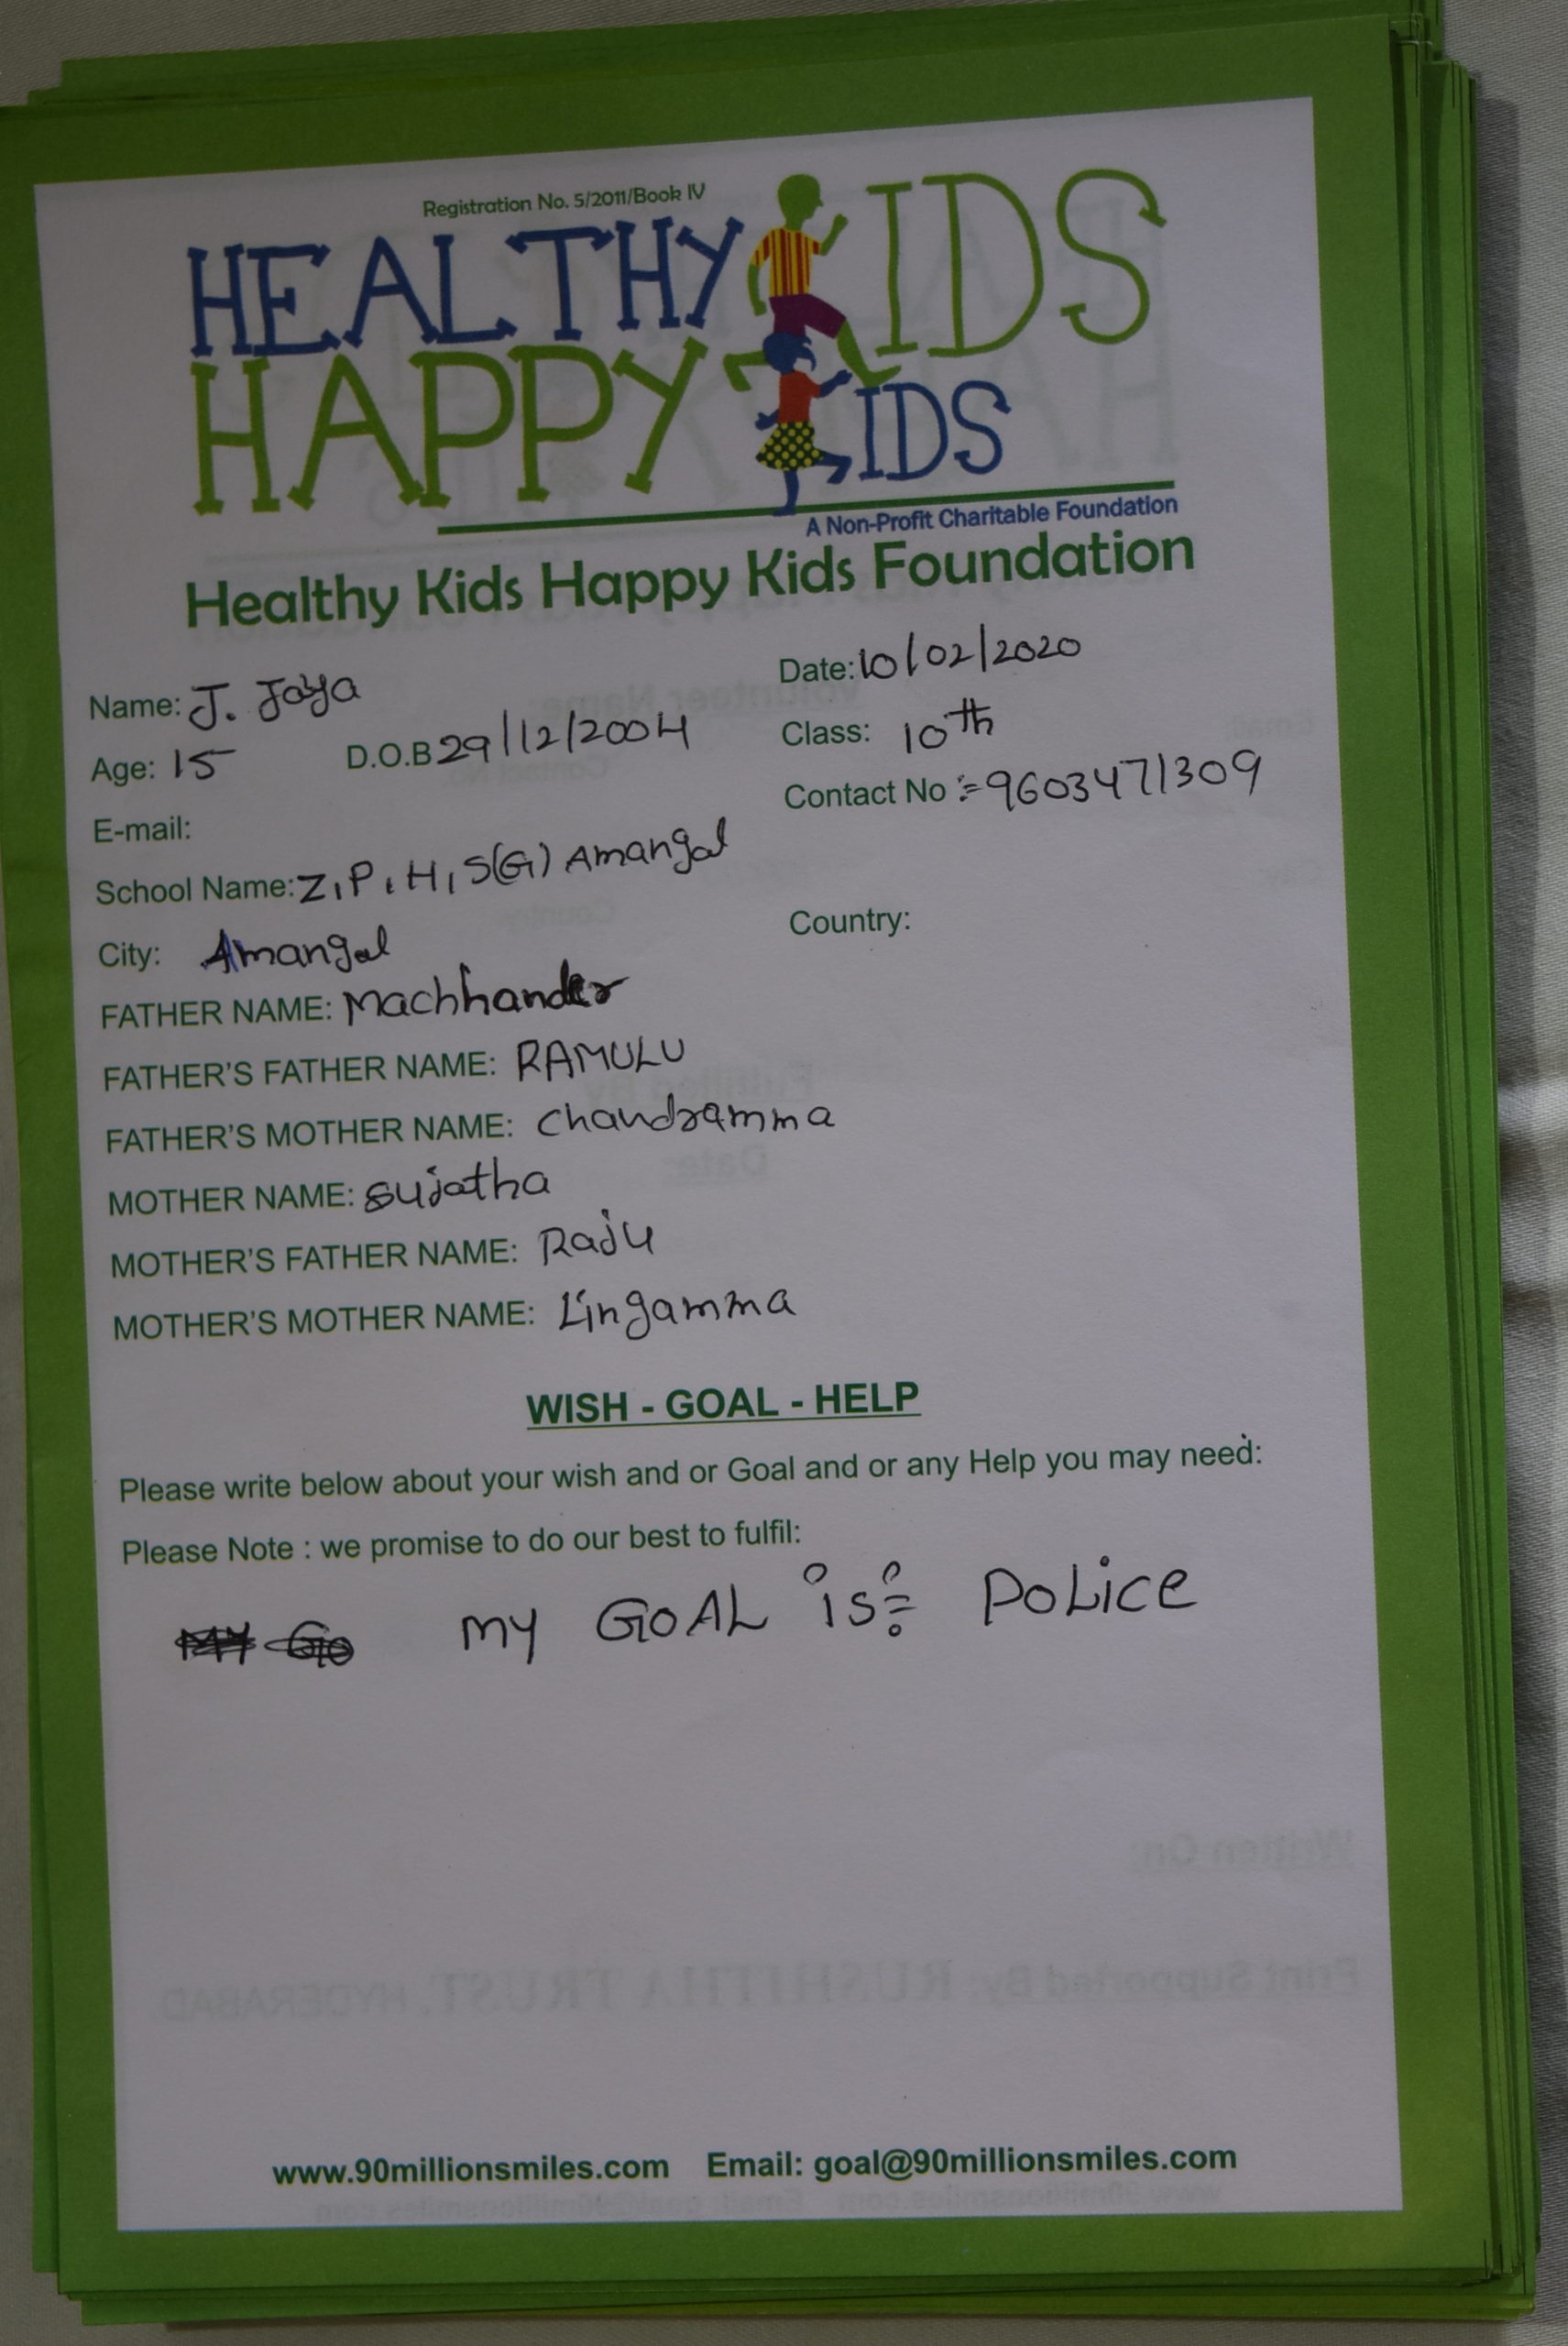 Registration No. 5/2011/Book IV
HEALTHY KIDS
HAPPY KIDS
A Non-Profit Charitable Foundation
Healthy Kids Happy Kids Foundation
Name: J. Jaya Date: 10/02/2020
Age: 15 D.O.B 29/12/2004 Class: 10th
E-mail: Contact No :- 9603471309
School Name: Z.P.H.S(G) Amangal
City: Amangal Country:
FATHER NAME: Machhander
FATHER'S FATHER NAME: RAMULU
FATHER'S MOTHER NAME: Chandramma
MOTHER NAME: Sujatha
MOTHER'S FATHER NAME: Raju
MOTHER'S MOTHER NAME: Lingamma
WISH - GOAL - HELP
Please write below about your wish and or Goal and or any Help you may need:
Please Note : we promise to do our best to fulfil:
MY GOAL is:- POLice
www.90millionsmiles.com Email: goal@90millionsmiles.com